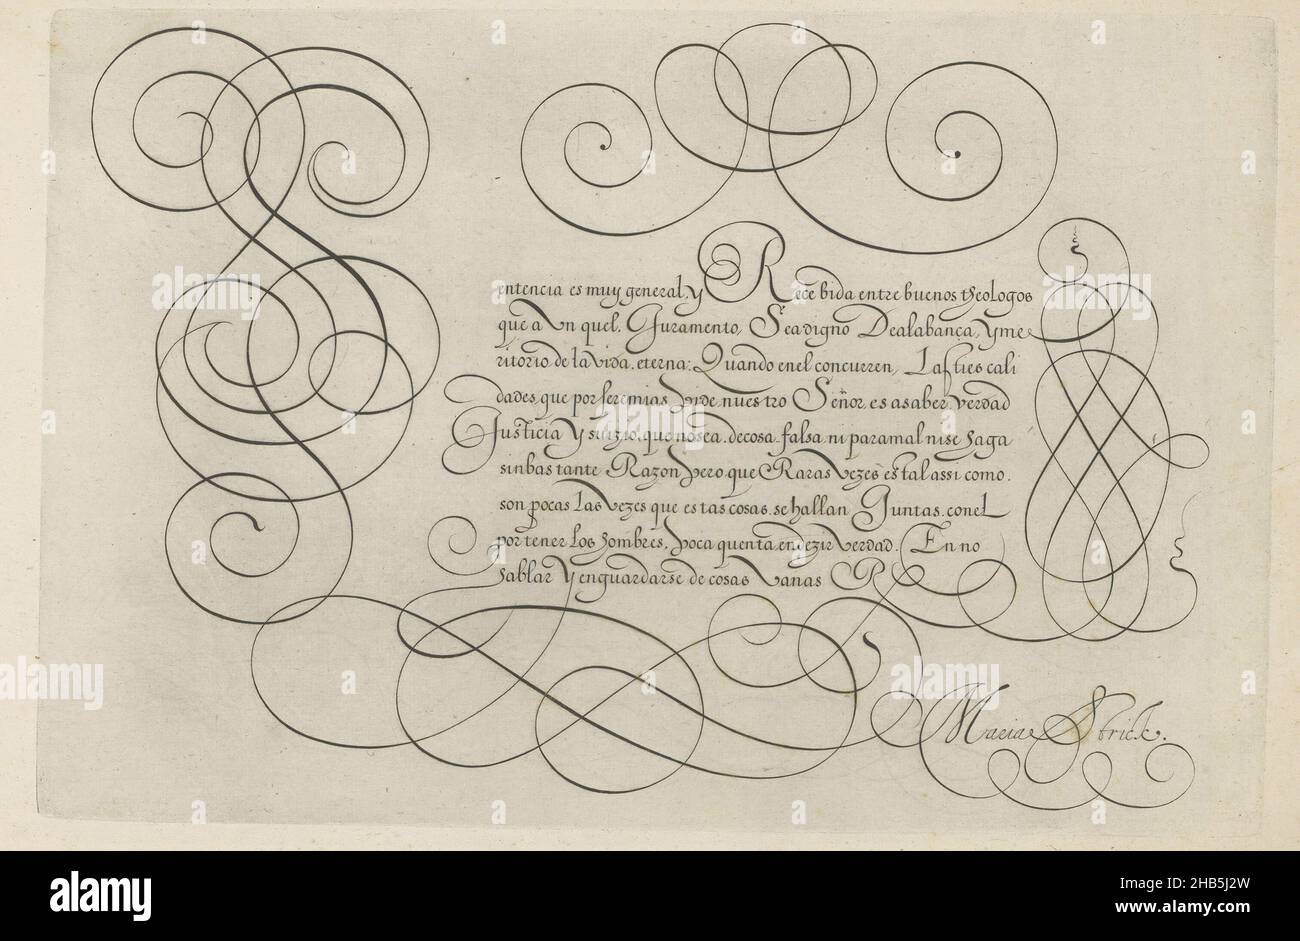 Sentencia es muy general, y Recebida entre buenos theologos
que a Un quel. Juramento, Sea digno De alabanca, y me
ritorio de la vida. eterna: Quando en el concurren, Las tres cali
dades, que por Jeremias pide. nuestro Señor, es a saber, verdad
Justicia y que no sea. de cosa. falsa. ni para mal ni se haga
sin bastante Razon, Pero. que Raras Vezes es tal assi como.
son pocas Las Vezes que estas cosas. se hallan Juntas. con el
por tener Los hombres. poca quenta. en dezir Verdad. En no
hablar Y en guardarse de cosas Vanas R
Maria Strick.
alamy
Image ID: 2HB5J2W
www.alamy.com